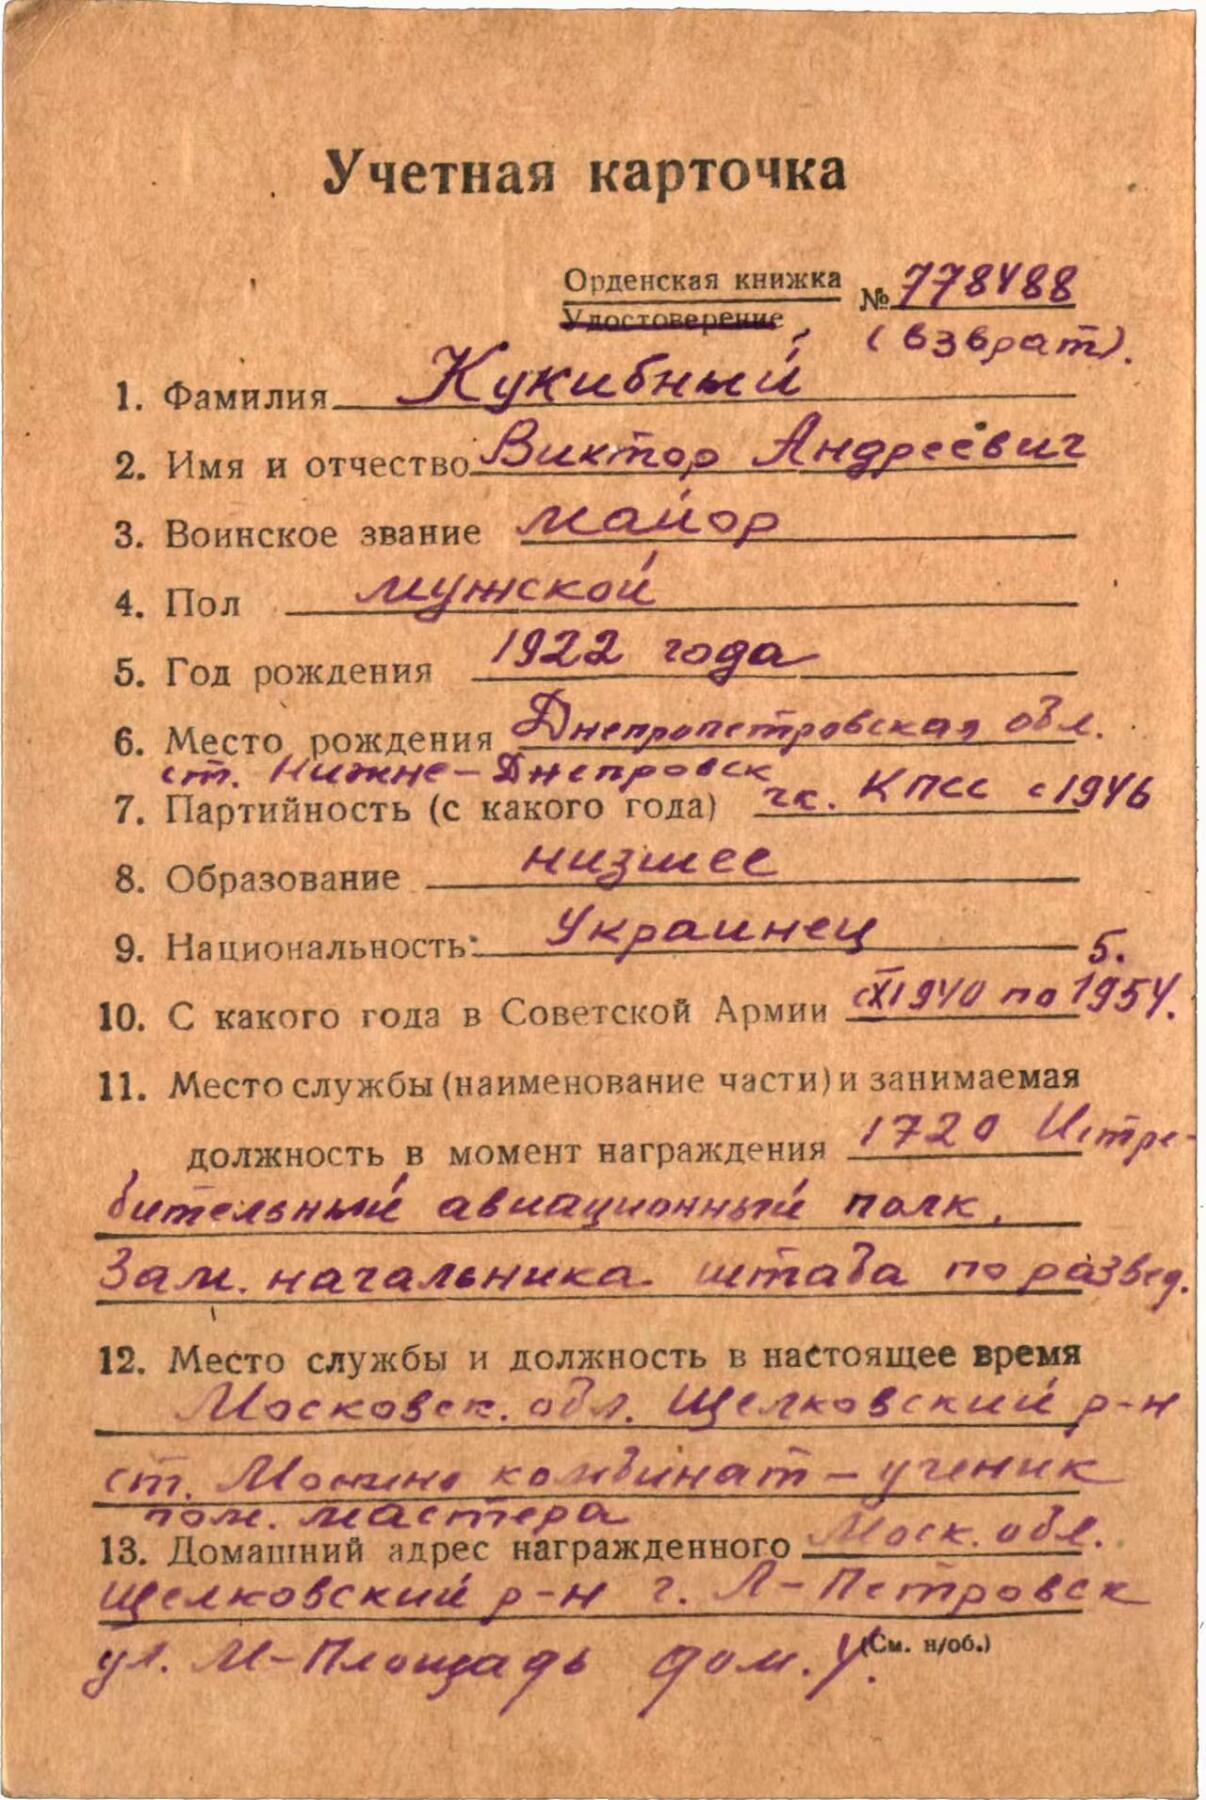 Учетная карточка
Орденская книжка
Удостоверение
№ 778488
(возврат).
1. Фамилия Кукибный
2. Имя и отчество Виктор Андреевич
3. Воинское звание майор
4. Пол мужской
5. Год рождения 1922 года
6. Место рождения Днепропетровская обл.
ст. Нижне-Днепровск
7. Партийность (с какого года) чк. КПСС с 1946
8. Образование низшее
9. Национальность: Украинец
5.
10. С какого года в Советской Армии сX1940 по 1954.
11. Место службы (наименование части) и занимаемая
должность в момент награждения 1720 Истре-
бительный авиационный полк,
Зам. начальника штаба по развед.
12. Место службы и должность в настоящее время
Московск. обл. Щелковский р-н
ст. Монино комбинат - ученик
пом. мастера
13. Домашний адрес награжденного Моск. обл.
Щелковский р-н г. Л-Петровск
ул. М-Площадь дом. 4.
(См. н/об.)